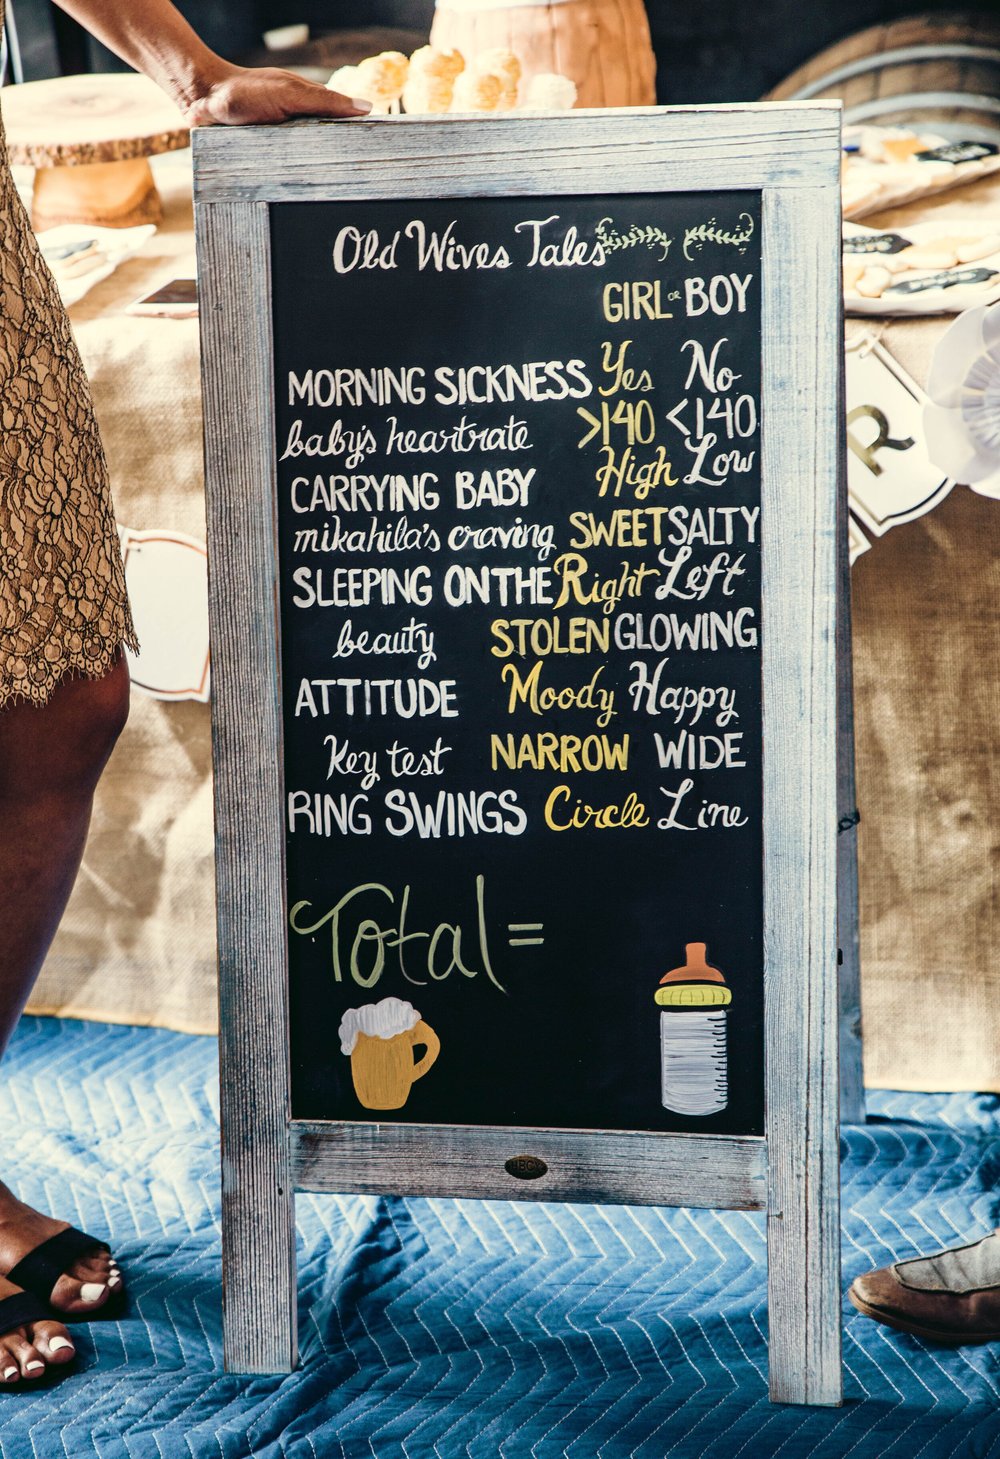 Old Wives Tales
GIRL or BOY
MORNING SICKNESS Yes No
baby's heartrate >140 <140
CARRYING BABY High Low
mikahila's craving SWEET SALTY
SLEEPING ON THE Right Left
beauty STOLEN GLOWING
ATTITUDE Moody Happy
Key test NARROW WIDE
RING SWINGS Circle Line
Total =
R